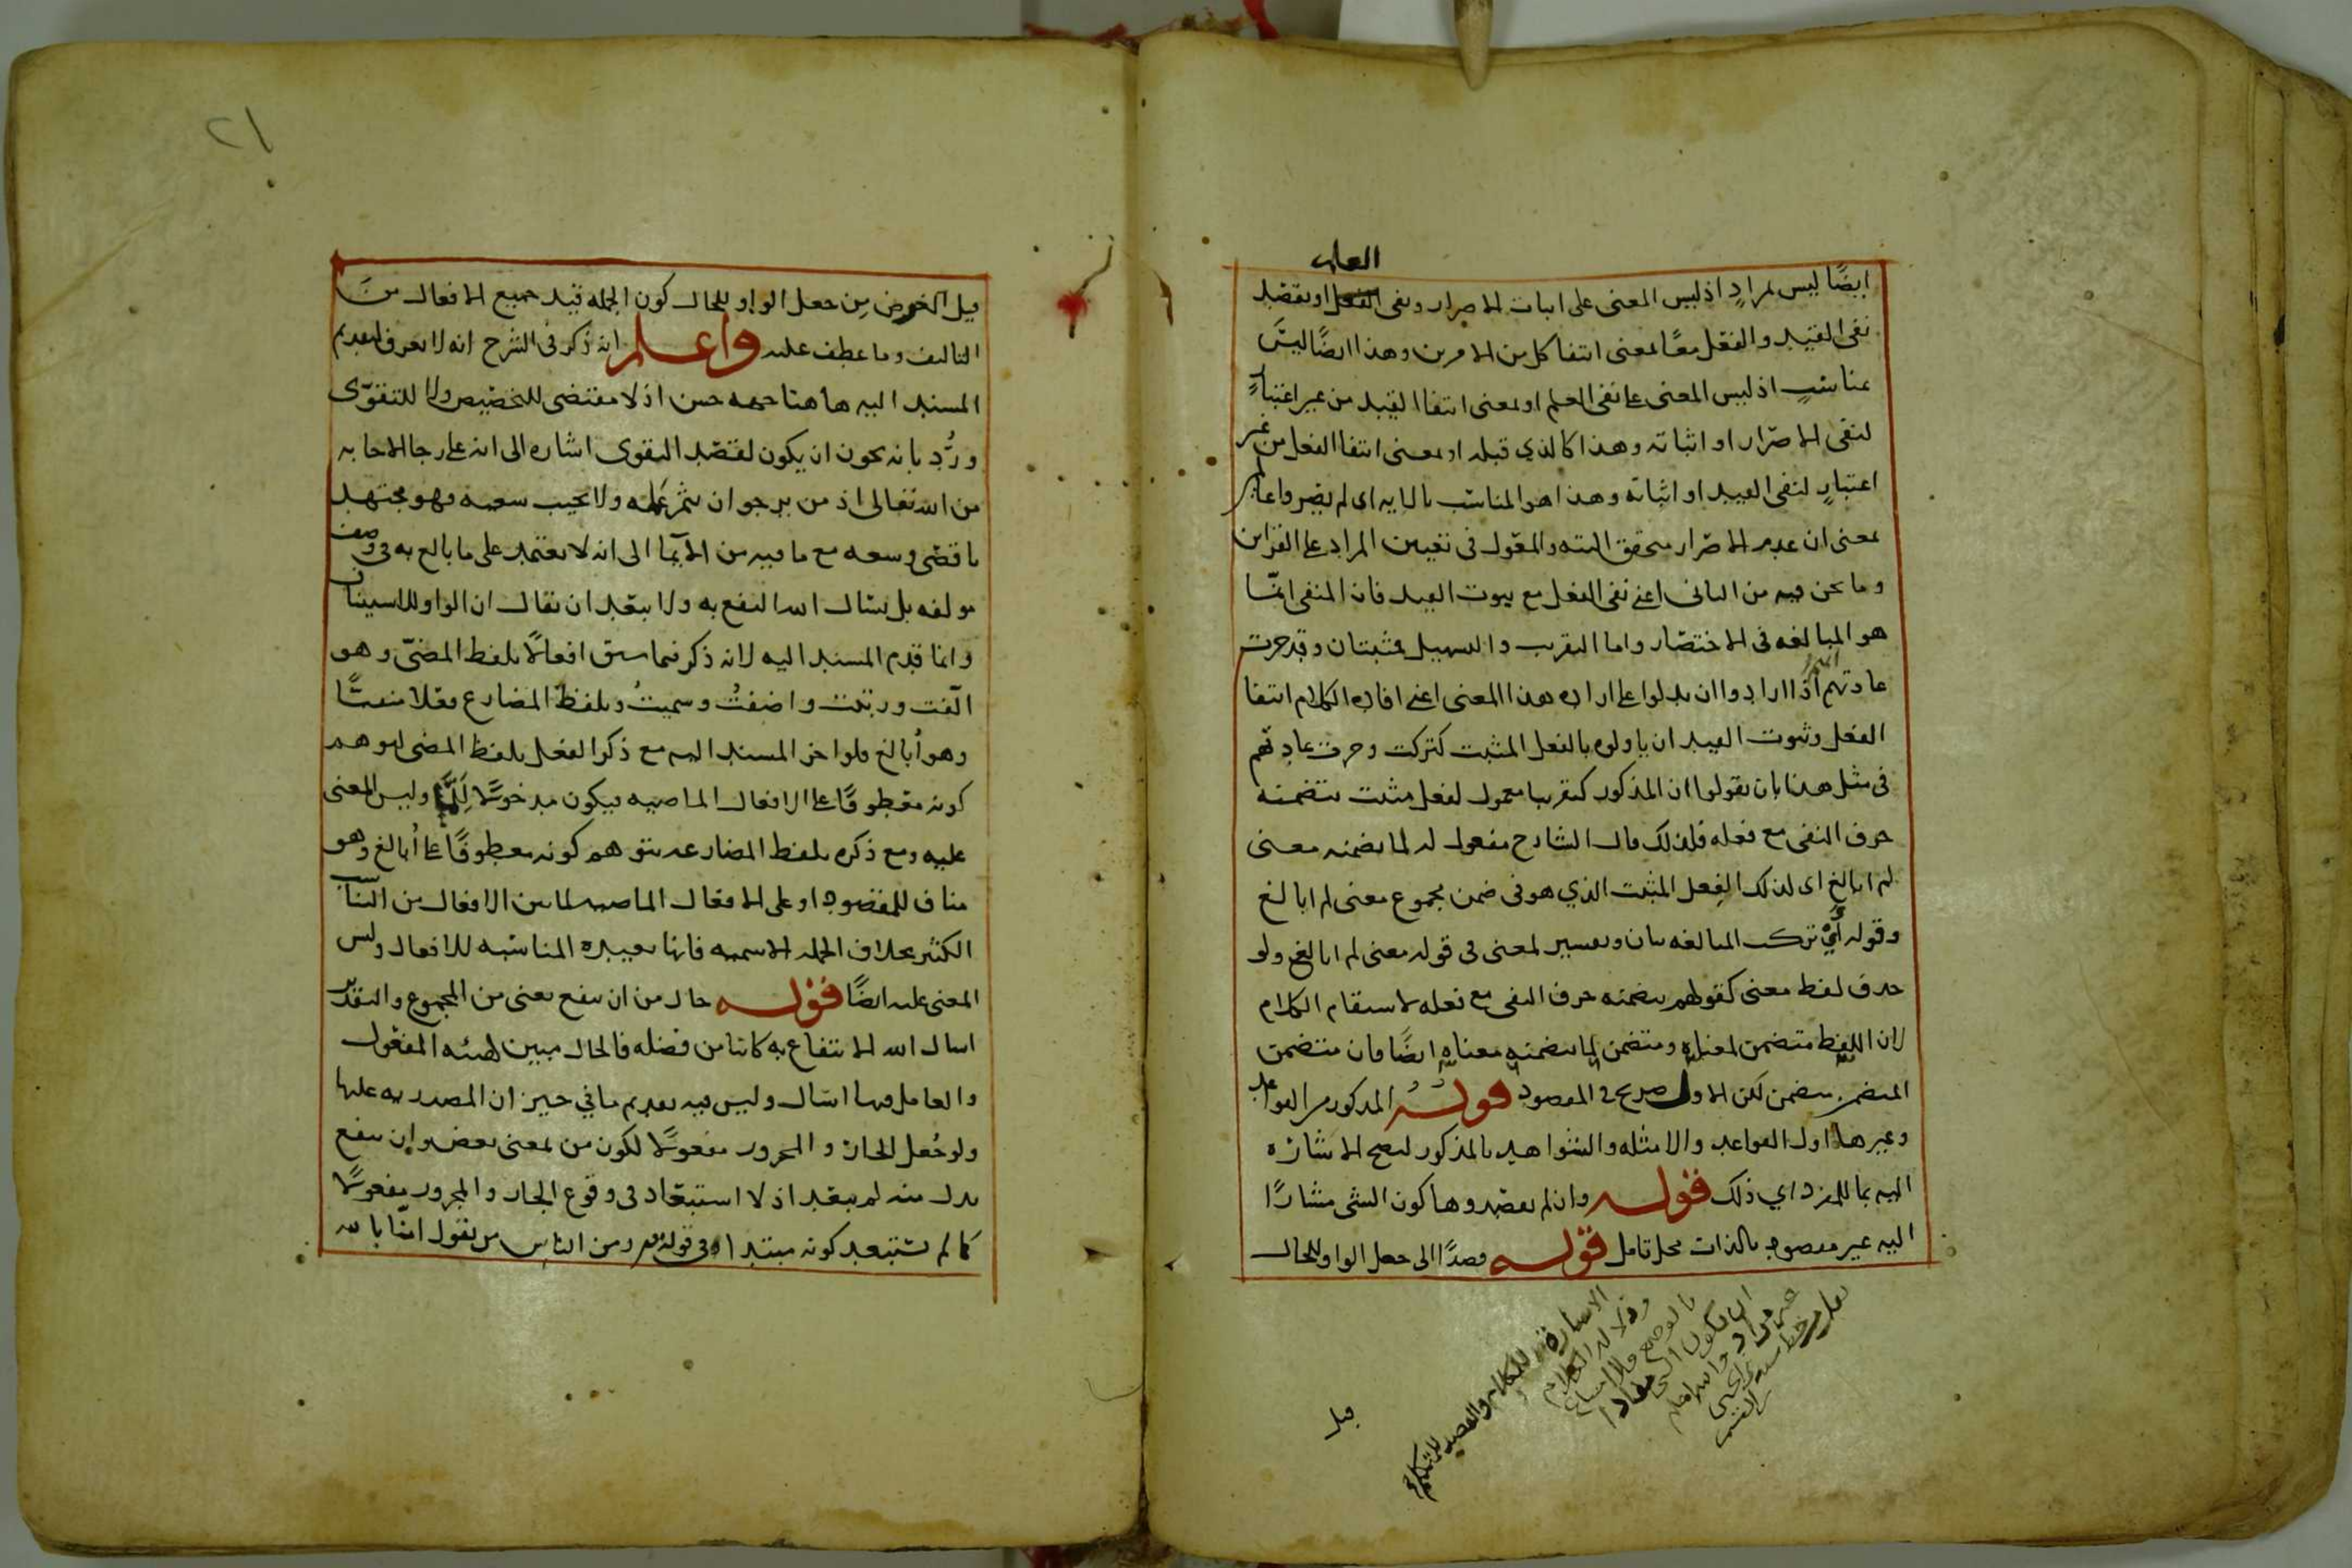 العلم
ايضًا ليس بمرادٍ اذ ليس المعنى على اثبات الاصرار ونفى الفعل او بقصد
نفى القيد والفعل معًا بمعنى انتفا كل من الامرين وهذا ايضًا ليس
بمناسبٍ اذ ليس المعنى على نفى العلم او بمعنى انتفا القيد من غير اعتبارٍ
لنفى الاصرار او اثباته وهذا كالذي قبله او بمعنى انتفا الفعل من غير
اعتبارٍ لنفى القيد او اثباته وهذا هو المناسب بالايه اى لم يصروا عالمين
بمعنى ان عدم الاصرار متحقق البته والمعول فى تعيين المراد على القراين
وما نحن فيه من الثانى اعنى نفى الفعل مع ثبوت القيد فان المنفى انما
هو المبالغه فى الاختصار واما التقريب والتسهيل فمثبتان وقد جرت
عادتهم اذا ارادوا ان يدلوا على اراده هذا المعنى اعنى افاده الكلام انتفا
الفعل وثبوت القيد ان ياولوه بالفعل المثبت كتركت وجرت عادتهم
فى مثل هذا بان يقولوا ان المذكور كتقريبا معمول لفعل مثبت يتضمنه
حرف النفى مع فعله فلذلك قال الشارح مفعول له لما تضمنه معنى
لم ابالغ اى لذلك الفعل المثبت الذي هو فى ضمن مجموع معنى لم ابالغ
وقوله اي تركت المبالغه بيان وتفسير لمعنى فى قوله معنى لم ابالغ ولو
حذف لفظ معنى كقولهم يتضمنه حرف النفى مع فعله لاستقام الكلام
لان اللفظ متضمن لمعناه ومتضمن لما يتضمنه معناه ايضًا فان متضمن
المتضمن متضمن لكن الاول صريح فى المقصود قوله المذكور من القواعد
وغيرها اول القواعد والامثله والشواهد بالمذكور لتصح الاشاره
اليه بما للمفرد اي ذلك قوله وان لم يقصدوها كون الشى مشارًا
اليه غير مقصود بالذات محل تامل قوله قصدًا الى جعل الواو للحال
الاشارة للكلام والقصد للمتكلم
قيل
٢١
قيل الغرض من جعل الواو للحال كون الجمله قيد جميع الافعال من
التاليف وما عطف عليه واعلم انه ذكر فى الشرح انه لا يعرف لتقديم
المسند اليه هاهنا جهه حسن اذ لا مقتضى للتخصيص ولا للتقوّى
ورُدّ بانه يجوز ان يكون لقصد التقوى اشاره الى انه على رجا الاجابه
من الله تعالى اذ من يرجو ان يثمر عمله ولا يخيب سعيه فهو مجتهد
باقصى وسعه مع ما فيه من الايما الى انه لا يعتمد على ما بالغ به فى وصف
مولفه بل يسال الله النفع به ولا يبعد ان يقال ان الواو للاستيناف
وانما قدم المسند اليه لانه ذكر فيما سبق افعالًا بلفظ المضىّ وهو
الّفت ورتبت واضفتُ وسميتُ وبلفظ المضارع فعلا منفيًّا
وهو اُبالغ فلو اخر المسند اليه مع ذكر الفعل بلفظ المضى لتوهم
كونه معطوفًا على الافعال الماضيه فيكون مدخولًا لِلَمَّا وليس المعنى
عليه ومع ذكره بلفظ المضارعه يتوهم كونه معطوفًا على اُبالغ وهو
مناف للمقصود او على الافعال الماضيه لما بين الافعال من التناسب
الكثير بخلاف الجمله الاسميه فانها بعيده المناسبه للافعال وليس
المعنى عليه ايضًا قوله حال من ان ينفع يعنى من المجموع والتقدير
اسال الله الانتفاع به كائنا من فضله فالحال مبين لهيئه المفعول
والعامل فيها اسال وليس فيه تقديم ما في حيز ان المصدريه عليها
ولو جُعل الجار والمجرور مفعولًا لكون من بمعنى بعض وان ينفع
بدل منه لم يبعد اذ لا استبعاد فى وقوع الجار والمجرور مفعولًا
كما لم يستبعد كونه مبتدا فى قوله ومن الناس من يقول امنّا بالله